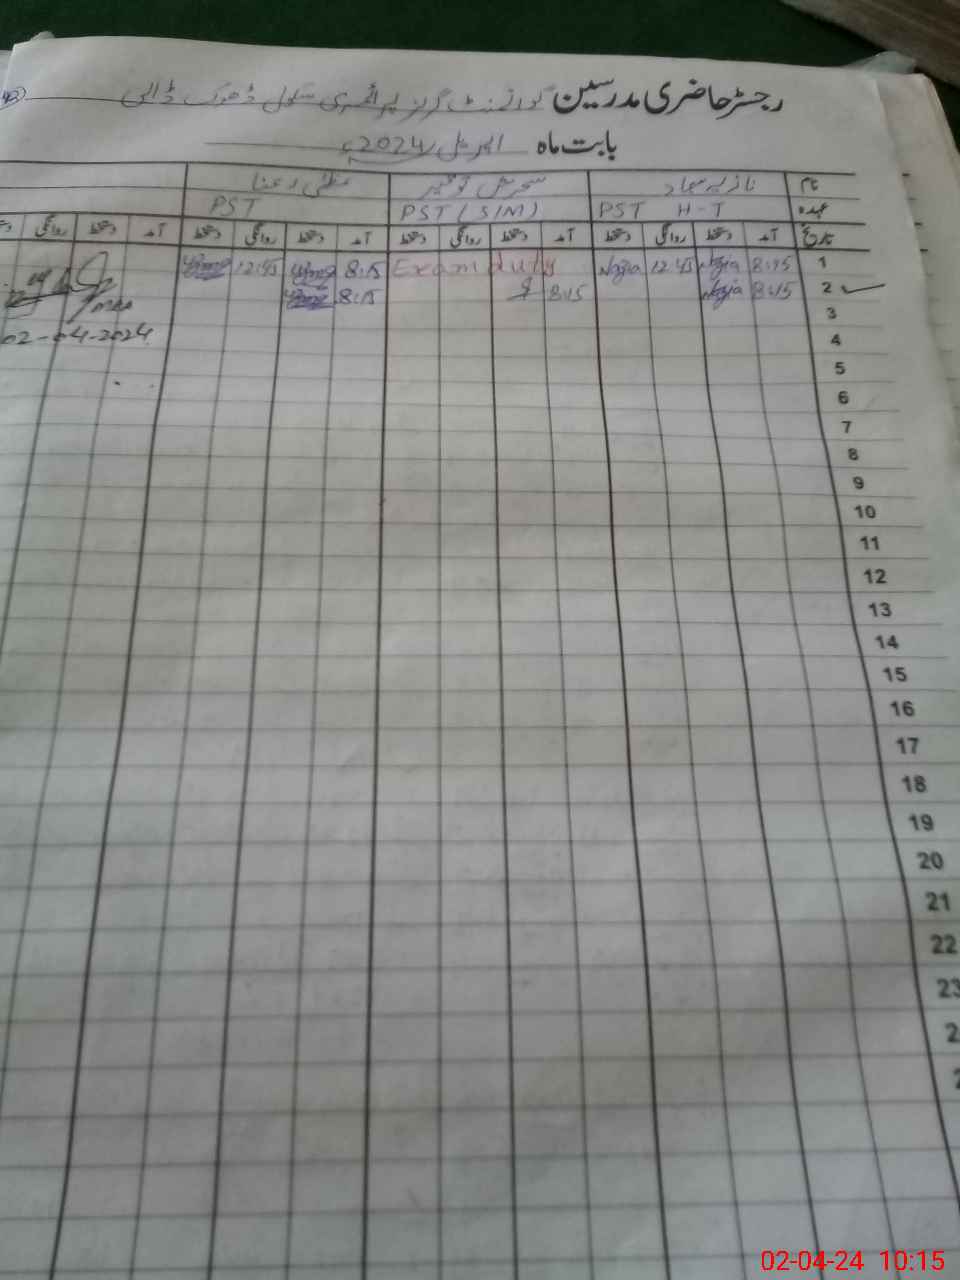 رجسٹر حاضری مدرسین گورنمنٹ گرلز پرائمری سکول ڈھوک ڈالی
بابت ماہ اپریل 2024ء
نام نازیہ سجاد سحرش توقیر عظمیٰ رعنا
عہدہ PST H-T PST (S/M) PST
تاریخ آمد دستخط روانگی دستخط آمد دستخط روانگی دستخط آمد دستخط روانگی دستخط آمد دستخط روانگی
1 8:15 Nazia 12:45 Nazia Exam duty 8:15 12:45
2 8:15 Nazia 8:15 8:15
02-04-2024
3
4
5
6
7
8
9
10
11
12
13
14
15
16
17
18
19
20
21
22
23
02-04-24 10:15